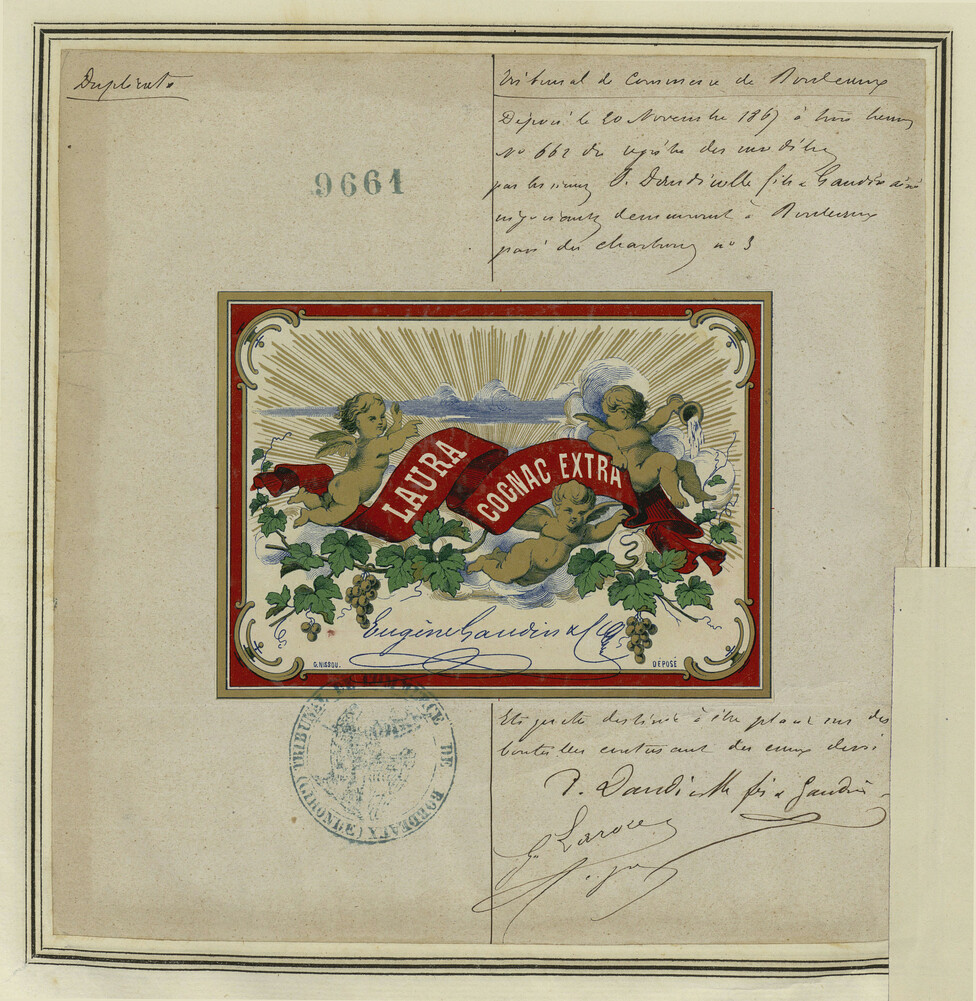 Duplicata
Tribunal de Commerce de Bordeaux
Déposé le 20 Novembre 1867 à trois heures
No 662 du registre des
9661
par les sieurs P. Dandicolle fils & Gaudin aîné
négociants demeurant à Bordeaux
pavé des chartrons no 3
LAURA
COGNAC EXTRA
Eugène Gaudin & Cie
G. NISSOU.
DÉPOSÉ
TRIBUNAL DE COMMERCE DE BORDEAUX (GIRONDE)
Etiquette destinée à être placée sur des
bouteilles contenant des eaux de vie
P. Dandicolle fils & Gaudin